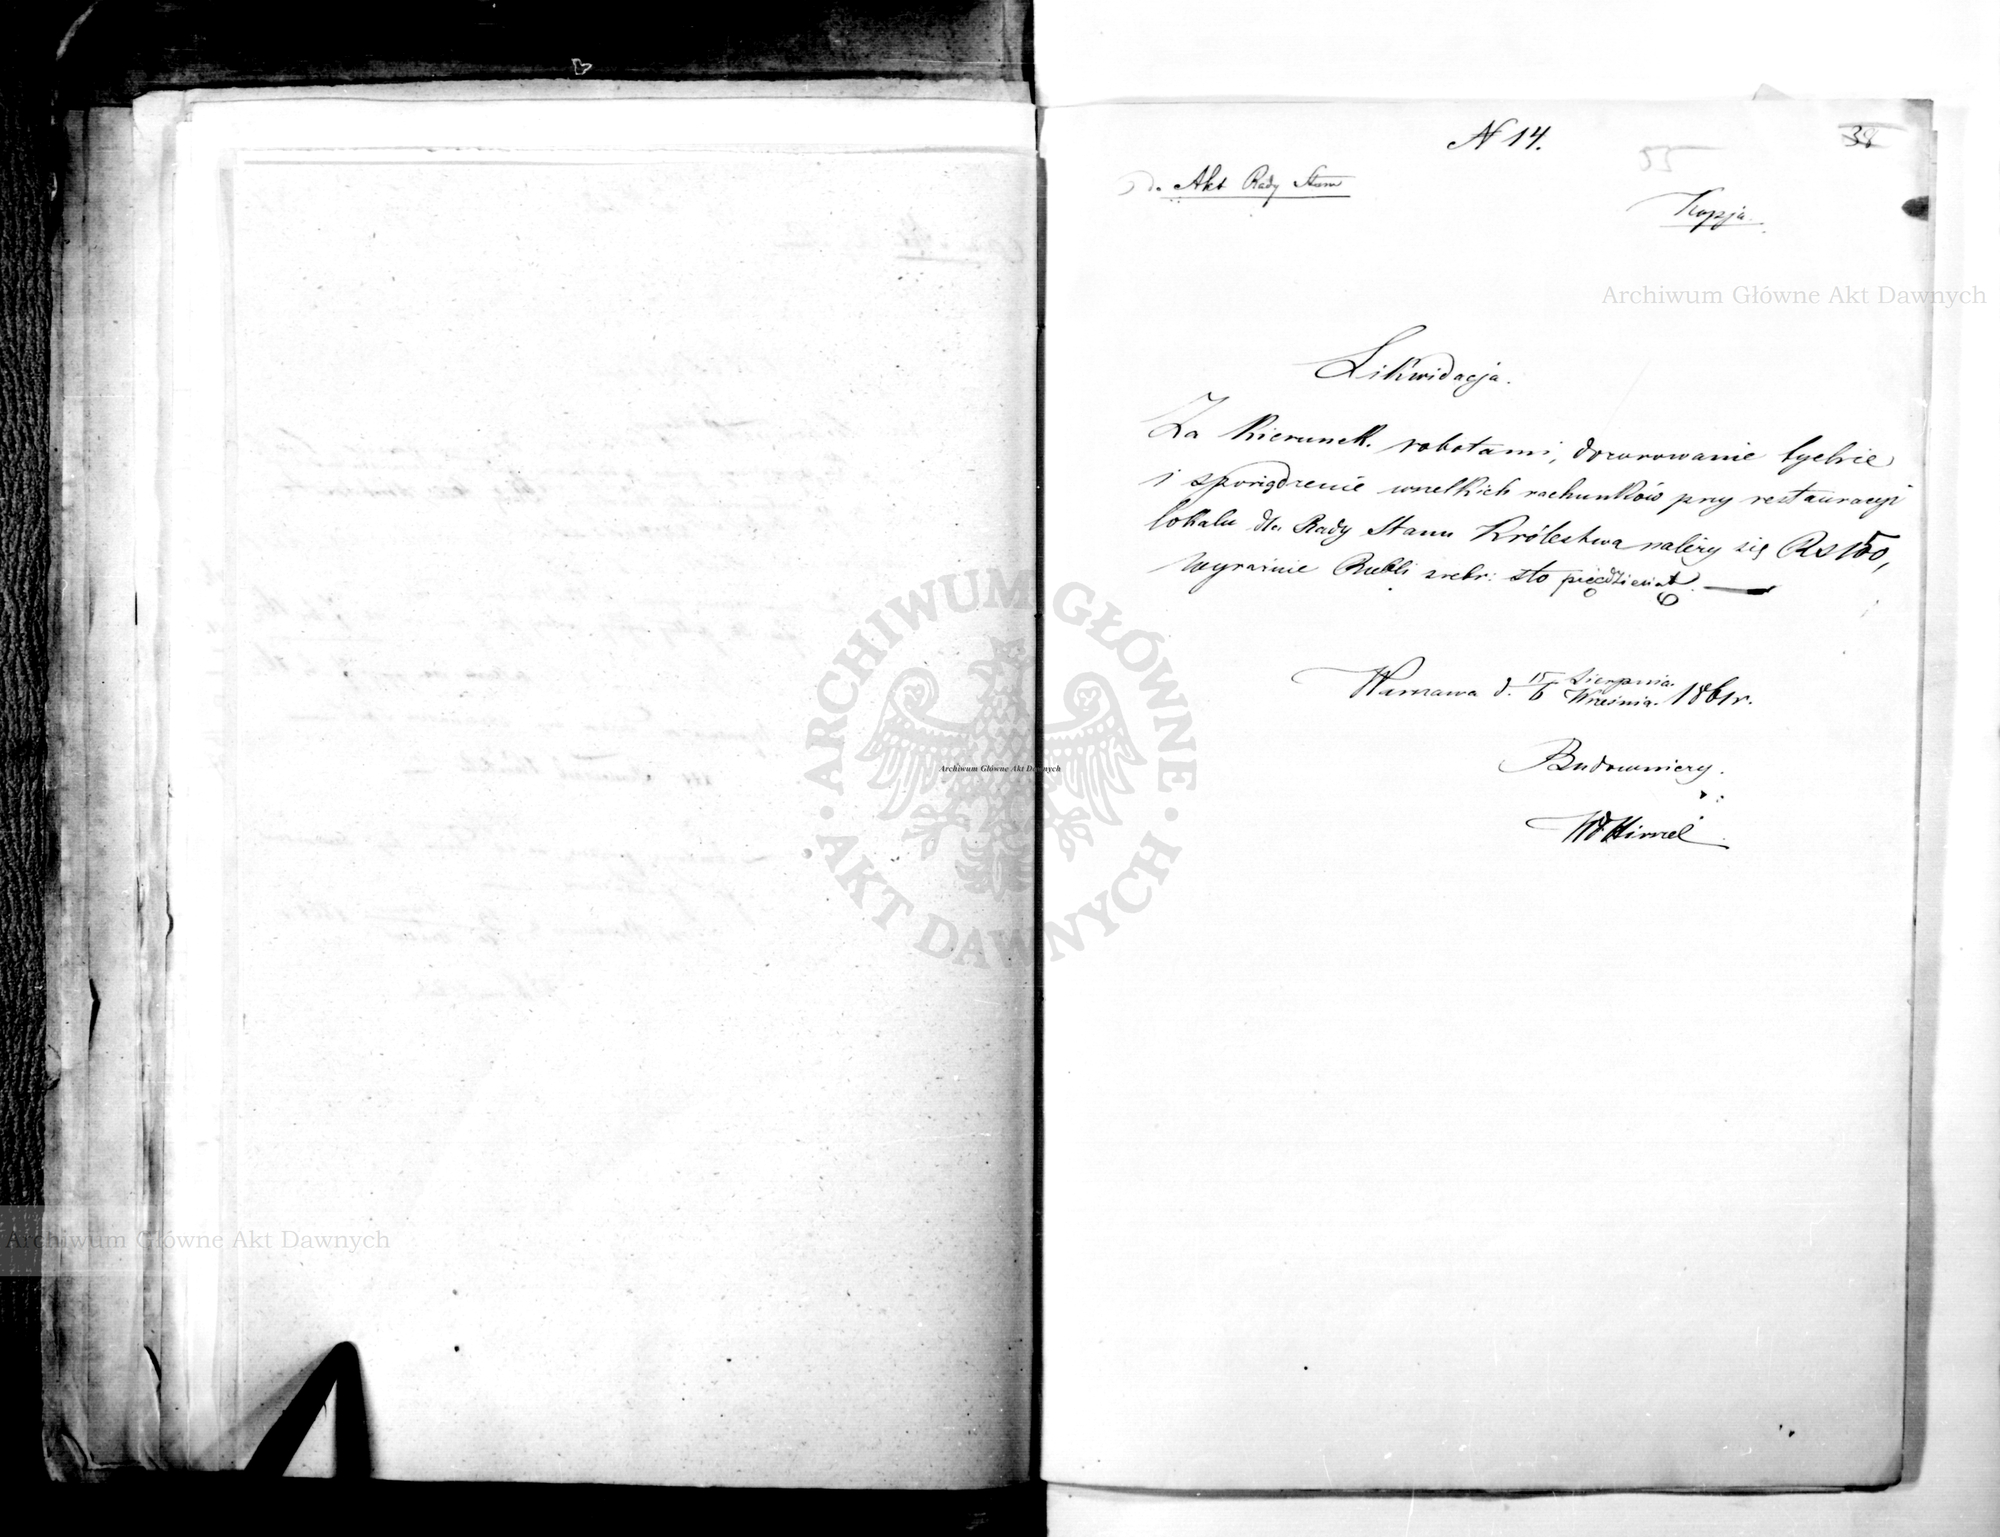 N 14.
38
55
do Akt Rady Stanu
Kopja.
Archiwum Główne Akt Dawnych
Likwidacja.
Za Kierunek robotami, dozorowanie tychże
i sporządzenie wszelkich rachunków przy restauracyi
lokalu dla Rady Stanu Królestwa należy się Rs 150,
wyraźnie Rubli srebr: sto pięćdziesiąt. —
Warszawa d. Sierpnia
6 Września 1861 r.
Budowniczy.
ARCHIWUM GŁÓWNE · AKT DAWNYCH ·
Archiwum Główne Akt Dawnych
Archiwum Główne Akt Dawnych